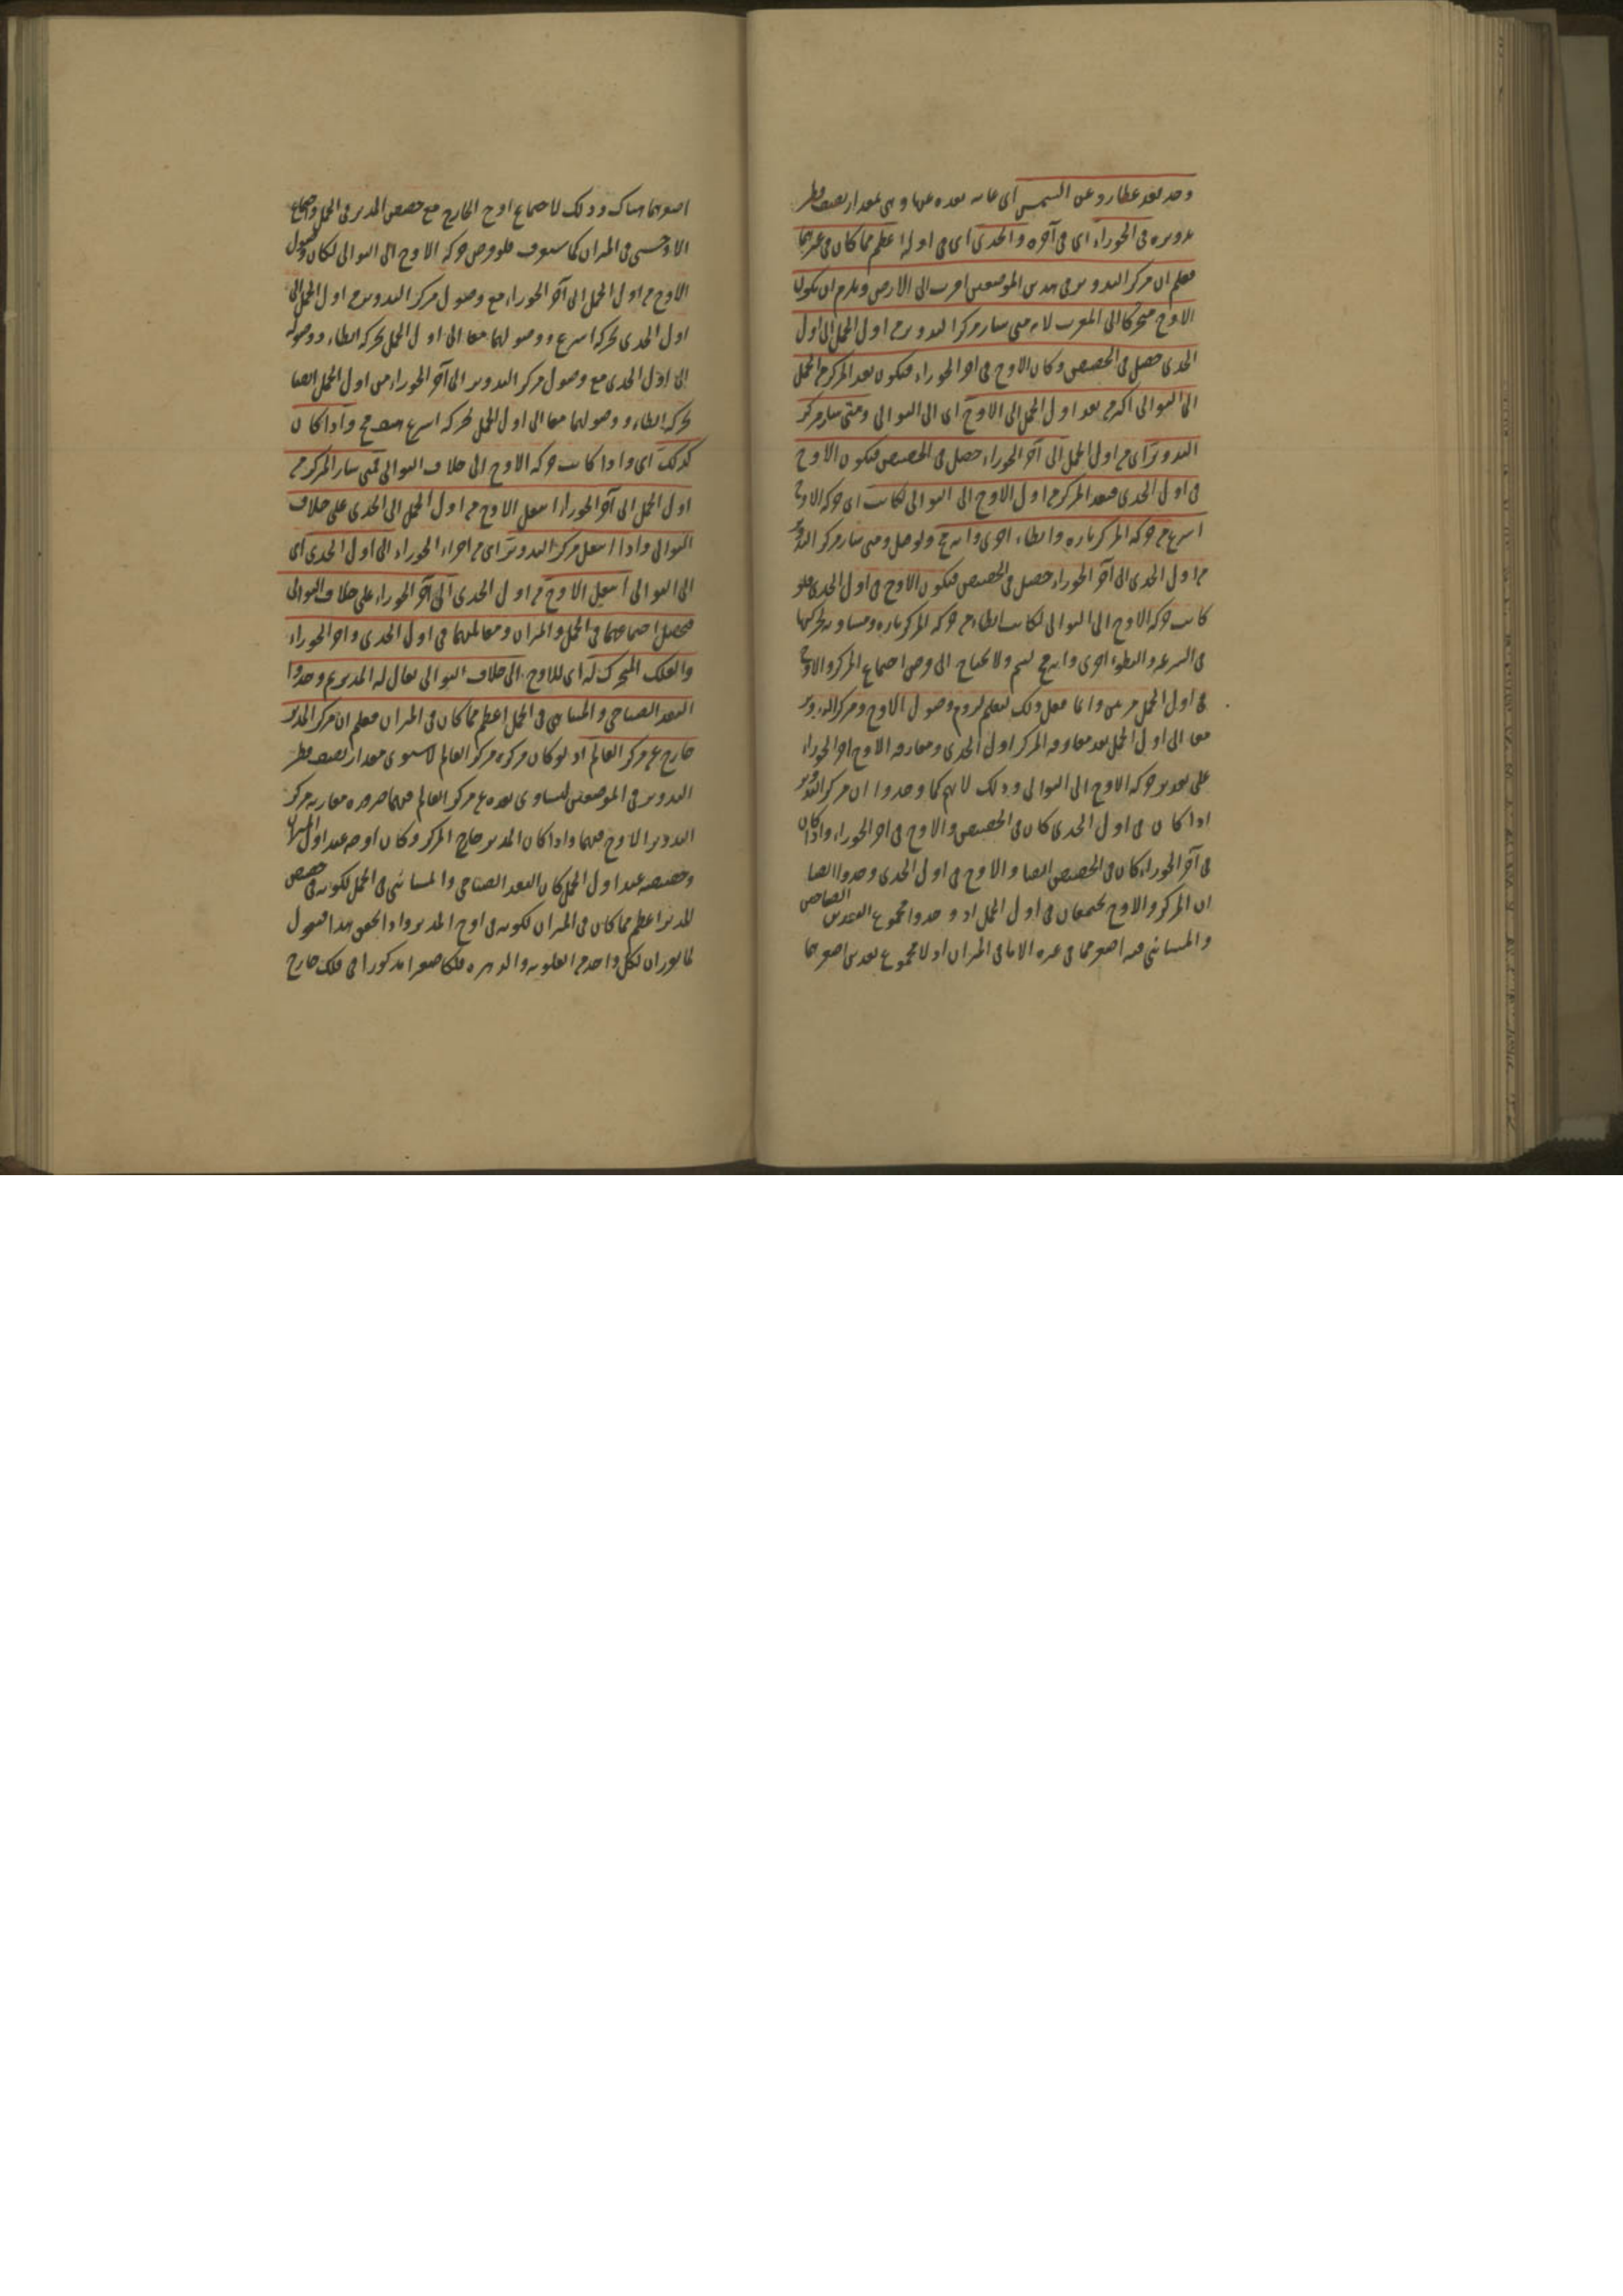 وجد بعد عطارد عن الشمس اى غاية بعده عنها وهى بمقدار نصف قطر
تدويره فى الجوزاء اى فى آخره والجدى اى فى اوله اعظم مما كان فى غيرهما
فعلم ان مركز التدوير فى هذين الموضعين اقرب الى الارض ويلزم ان يكون
الاوج متحركا الى المغرب لانه متى سار مركز التدوير من اول الحمل الى اول
الجدى حصل فى الحضيض وكان الاوج فى اخر الجوزاء فيكون بعد المركز من الحمل
الى التوالى اكثر من بعد اول الحمل الى الاوج اى الى التوالى ومتى سار مركز
التدوير اى من اول الحمل الى آخر الجوزاء حصل فى الحضيض فيكون الاوج
فى اول الجدى فبعد المركز من اول الاوج الى التوالى لكانت اى حركة الاوج
اسرع من حركة المركز تارة وابطاء اخرى وانه مح ولو حصل ومتى سار مركز التدوير
من اول الجدى الى آخر الجوزاء حصل فى الحضيض فيكون الاوج فى اول الجدى فلو
كانت حركة الاوج الى التوالى لكانت ابطاء من حركة المركز تارة ومساوية لحركتها
فى السرعة والبطوء اخرى وانه مح لتم ولا يحتاج الى فرض اجتماع المركز والاوج
فى اول الحمل مرتين وانما فعل ذلك ليعلم لزوم وصول الاوج ومركز التدوير
معا الى اول الحمل بعد مفارقة المركز اول الجدى ومفارقة الاوج اخر الجوزاء
على تقدير حركة الاوج الى التوالى وذلك لانهم كما وجدوا ان مركز التدوير
اذا كان فى اول الجدى كان فى الحضيض والاوج فى اخر الجوزاء واذا كان
فى آخر الجوزاء كان فى الحضيض ايضا والاوج فى اول الجدى وجدوا ايضا
ان المركز والاوج يجتمعان فى اول الحمل اذ وجدوا مجموع البعدين الصباحى
والمسائى فيه اصغر مما فى غيره الا ما فى الميزان اذ لا مجموع بعدين اصغر مما
اصغرهما هناك وذلك لاجتماع اوج الخارج مع حضيض المدير فى الحمل واجتماع
الاوجين فى الميزان كما ستعرف فلو فرض حركة الاوج الى التوالى لكان وصول
الاوج من اول الحمل الى آخر الجوزاء مع وصول مركز التدوير من اول الحمل الى
اول الجدى بحركة اسرع ووصولهما معا الى اول الحمل بحركة ابطاء ووصوله
الى اول الجدى مع وصول مركز التدوير الى آخر الجوزاء من اول الحمل ايضا
بحركة ابطاء ووصولهما معا الى اول الحمل بحركة اسرع هف مح واذا كان
كذلك اى واذا كانت حركة الاوج الى خلاف التوالى فمتى سار المركز من
اول الحمل الى آخر الجوزاء انتقل الاوج من اول الحمل الى الجدى على خلاف
التوالى واذا انتقل مركز التدوير اى من اجزاء الجوزاء الى اول الجدى اى
الى التوالى انتقل الاوج من اول الجدى الى آخر الجوزاء على خلاف التوالى
فيحصل اجتماعهما فى الحمل والميزان ومقابلتهما فى اول الجدى واخر الجوزاء
والفلك المتحرك له اى للاوج الى خلاف التوالى يقال له المدير ثم وجدوا
البعد الصباحى والمسائى فى الحمل اعظم مما كان فى الميزان فعلم ان مركز المدير
خارج عن مركز العالم اذ لو كان مركزه مركز العالم لاستوى مقدار نصف قطر
التدوير فى الموضعين لتساوى بعده عن مركز العالم فيهما ضرورة مقارنة مركز
التدوير الاوج فيهما واذا كان المدير خارج المركز وكان اوجه عند اول الميزان
وحضيضه عند اول الحمل كان البعد الصباحى والمسائى فى الحمل لكونه فى حضيض
المدير اعظم مما كان فى الميزان لكونه فى اوج المدير واذا تحقق هذا فنقول
لما تقرر ان لكل واحد من العلوية والزهرة فلكا صغيرا مذكورا فى فلك خارج